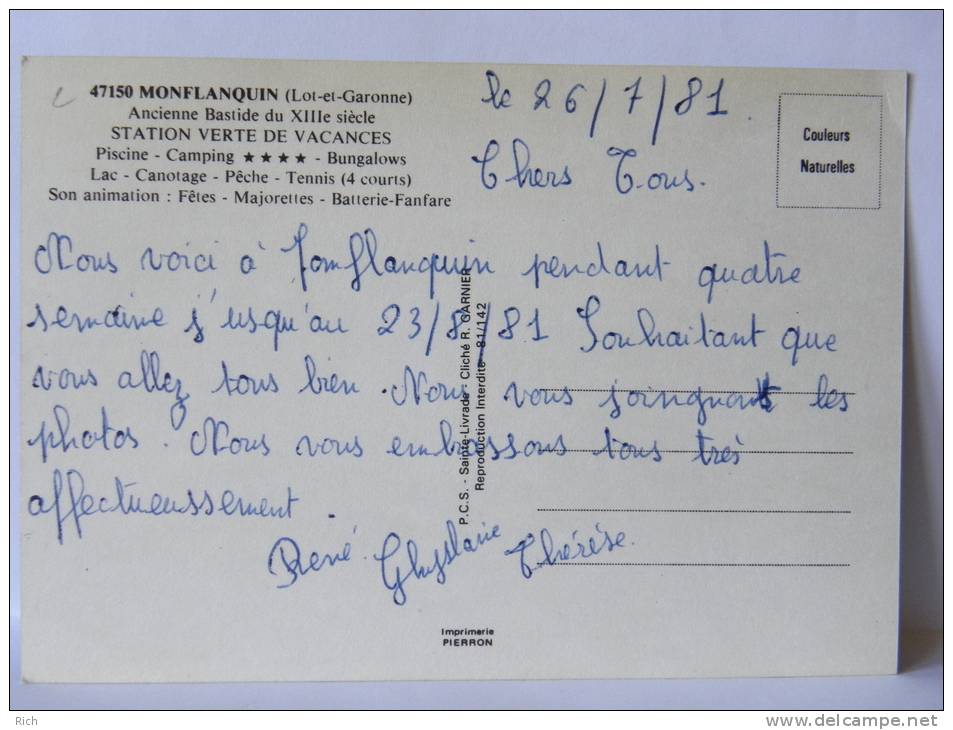 47150 MONFLANQUIN (Lot-et-Garonne)
Ancienne Bastide du XIIIe siècle
STATION VERTE DE VACANCES
Piscine - Camping ★★★★ - Bungalows
Lac - Canotage - Pêche - Tennis (4 courts)
Son animation : Fêtes - Majorettes - Batterie-Fanfare
le 26/7/81
Chers Tous.
Couleurs
Naturelles
Nous voici à Jomflanquin pendant quatre
semaine j'usqu'au 23/8/81 Souhaitant que
vous allez tous bien. Nous vous joingnont les
photos. Nous vous embrassons tous très
affectueussement.
René Ghyslaine Thérèse.
P.C.S. - Sainte-Livrade - Cliché R. GARNIER
Reproduction Interdite - 81/142
Imprimerie
PIERRON
Rich
www.delcampe.net